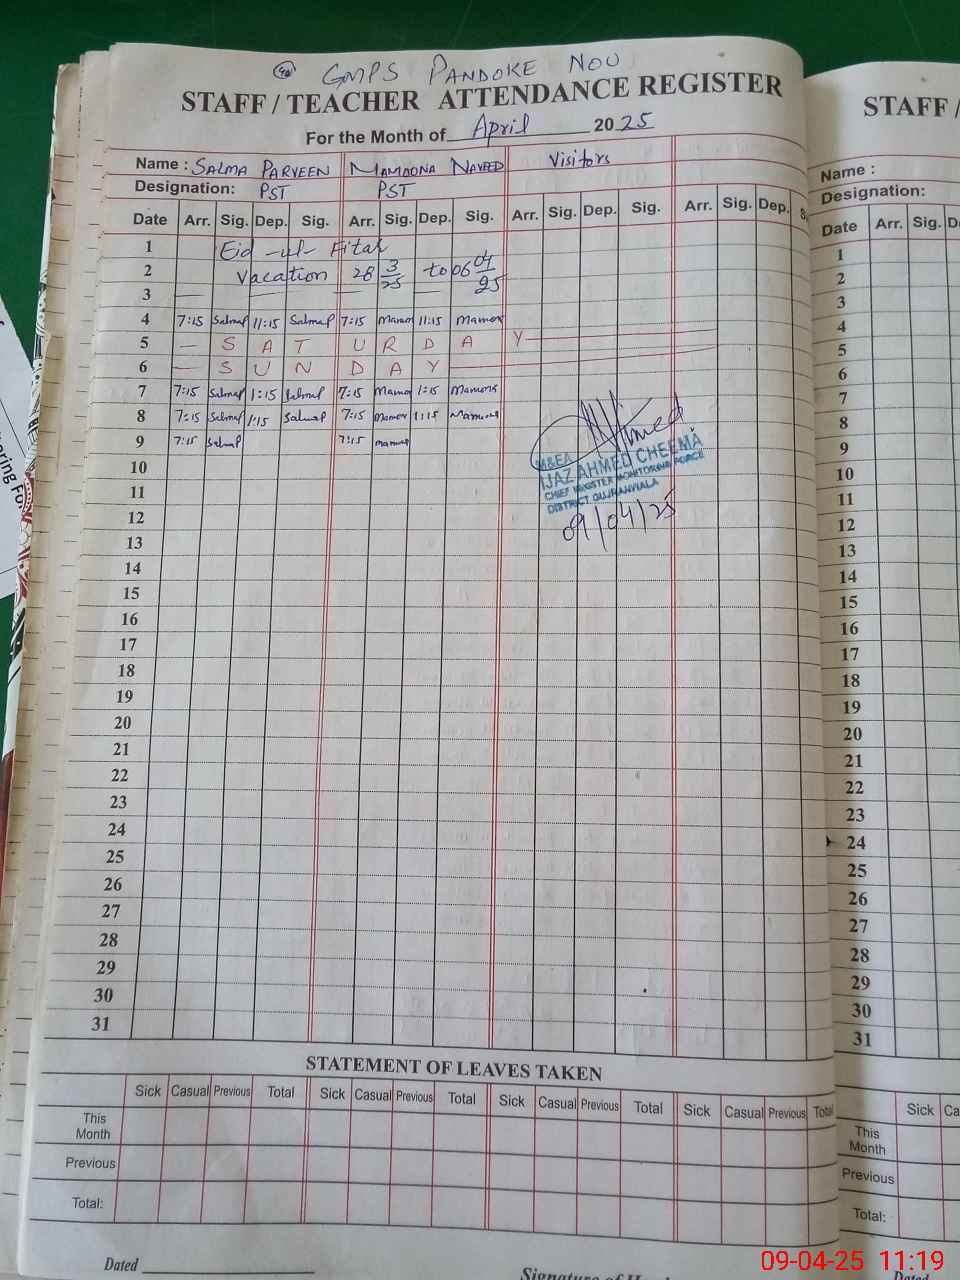 40 GMPS PANDOKE NOU
STAFF / TEACHER ATTENDANCE REGISTER
For the Month of April 2025
Name : SALMA PARVEEN MAMOONA NAVEED Visitors
Designation: PST PST
Date Arr. Sig. Dep. Sig. Arr. Sig. Dep. Sig. Arr. Sig. Dep. Sig. Arr. Sig. Dep. S
1 Eid -ul- Fitar
2 Vacation 28 3/25 to 06 04/25
3
4 7:15 SalmaP 11:15 SalmaP 7:15 Mamon 11:15 Mamon
5 — S A T U R D A Y
6 — S U N D A Y
7 7:15 SalmaP 1:15 SalmaP 7:15 Mamon 1:15 Mamona
8 7:15 SalmaP 1:15 SalmaP 7:15 Mamon 1:15 Mamona
9 7:15 SalmaP 7:15 Mamona
10
11
12
13
14
15
16
17
18
19
20
21
22
23
24
25
26
27
28
29
30
31
M&EA
IJAZ AHMED CHEEMA
CHIEF MINISTER MONITORING FORCE
DISTRICT GUJRANWALA
09/04/25
STATEMENT OF LEAVES TAKEN
Sick Casual Previous Total Sick Casual Previous Total Sick Casual Previous Total Sick Casual Previous Total
This Month
Previous
Total:
Dated
STAFF /
Name :
Designation:
Date Arr. Sig. D
1
2
3
4
5
6
7
8
9
10
11
12
13
14
15
16
17
18
19
20
21
22
23
24
25
26
27
28
29
30
31
Sick Ca
This Month
Previous
Total:
09-04-25 11:19